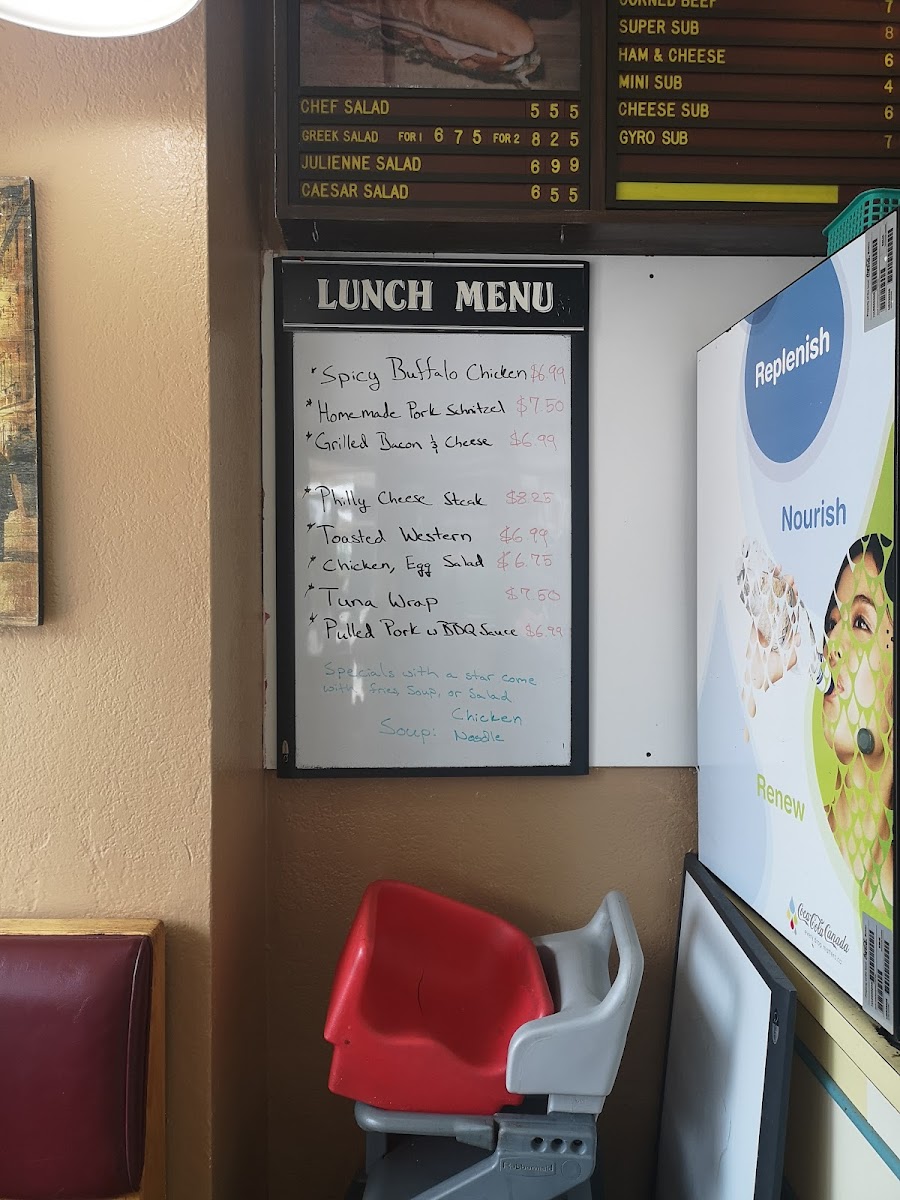 CHEF SALAD 5 5 5
GREEK SALAD FOR 1 6 7 5 FOR 2 8 2 5
JULIENNE SALAD 6 9 9
CAESAR SALAD 6 5 5
CORNED BEEF 7
SUPER SUB 8
HAM & CHEESE 6
MINI SUB 4
CHEESE SUB 6
GYRO SUB 7
LUNCH MENU
* Spicy Buffalo Chicken $6.99
* Homemade Pork Schnitzel $7.50
* Grilled Bacon & Cheese $6.99
* Philly Cheese Steak $8.25
* Toasted Western $6.99
* Chicken, Egg Salad $6.75
* Tuna Wrap $7.50
* Pulled Pork w BBQ Sauce $6.99
Specials with a star come
with fries, Soup, or Salad
Soup: Chicken
Noodle
Replenish
Nourish
Renew
Coca-Cola Canada
Rubbermaid